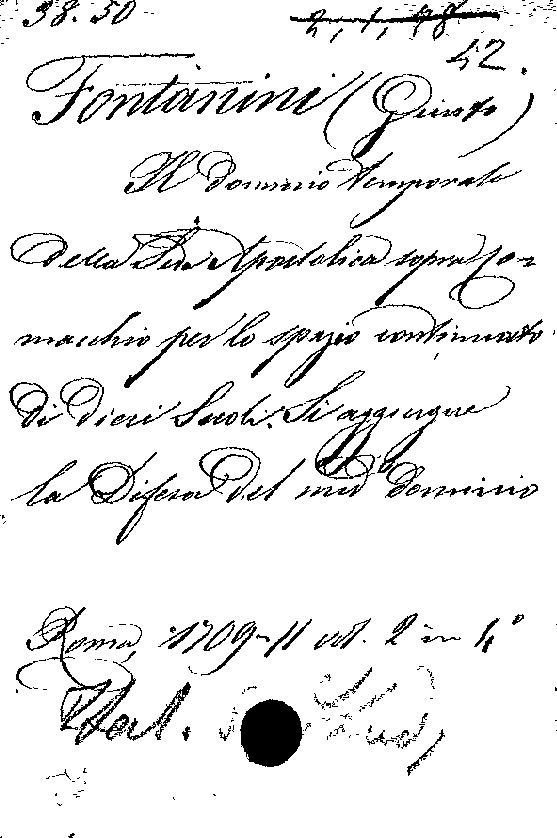 38. 50
2, 1, 28
42.
Fontanini (Giusto)
Il dominio temporale
della Sede Apostolica sopra Co=
macchio per lo spazio continuato
di dieci Secoli. Si aggiugne
la Difesa del med.º dominio
Roma, 1709-11 vol. 2 in 4º
Ital.